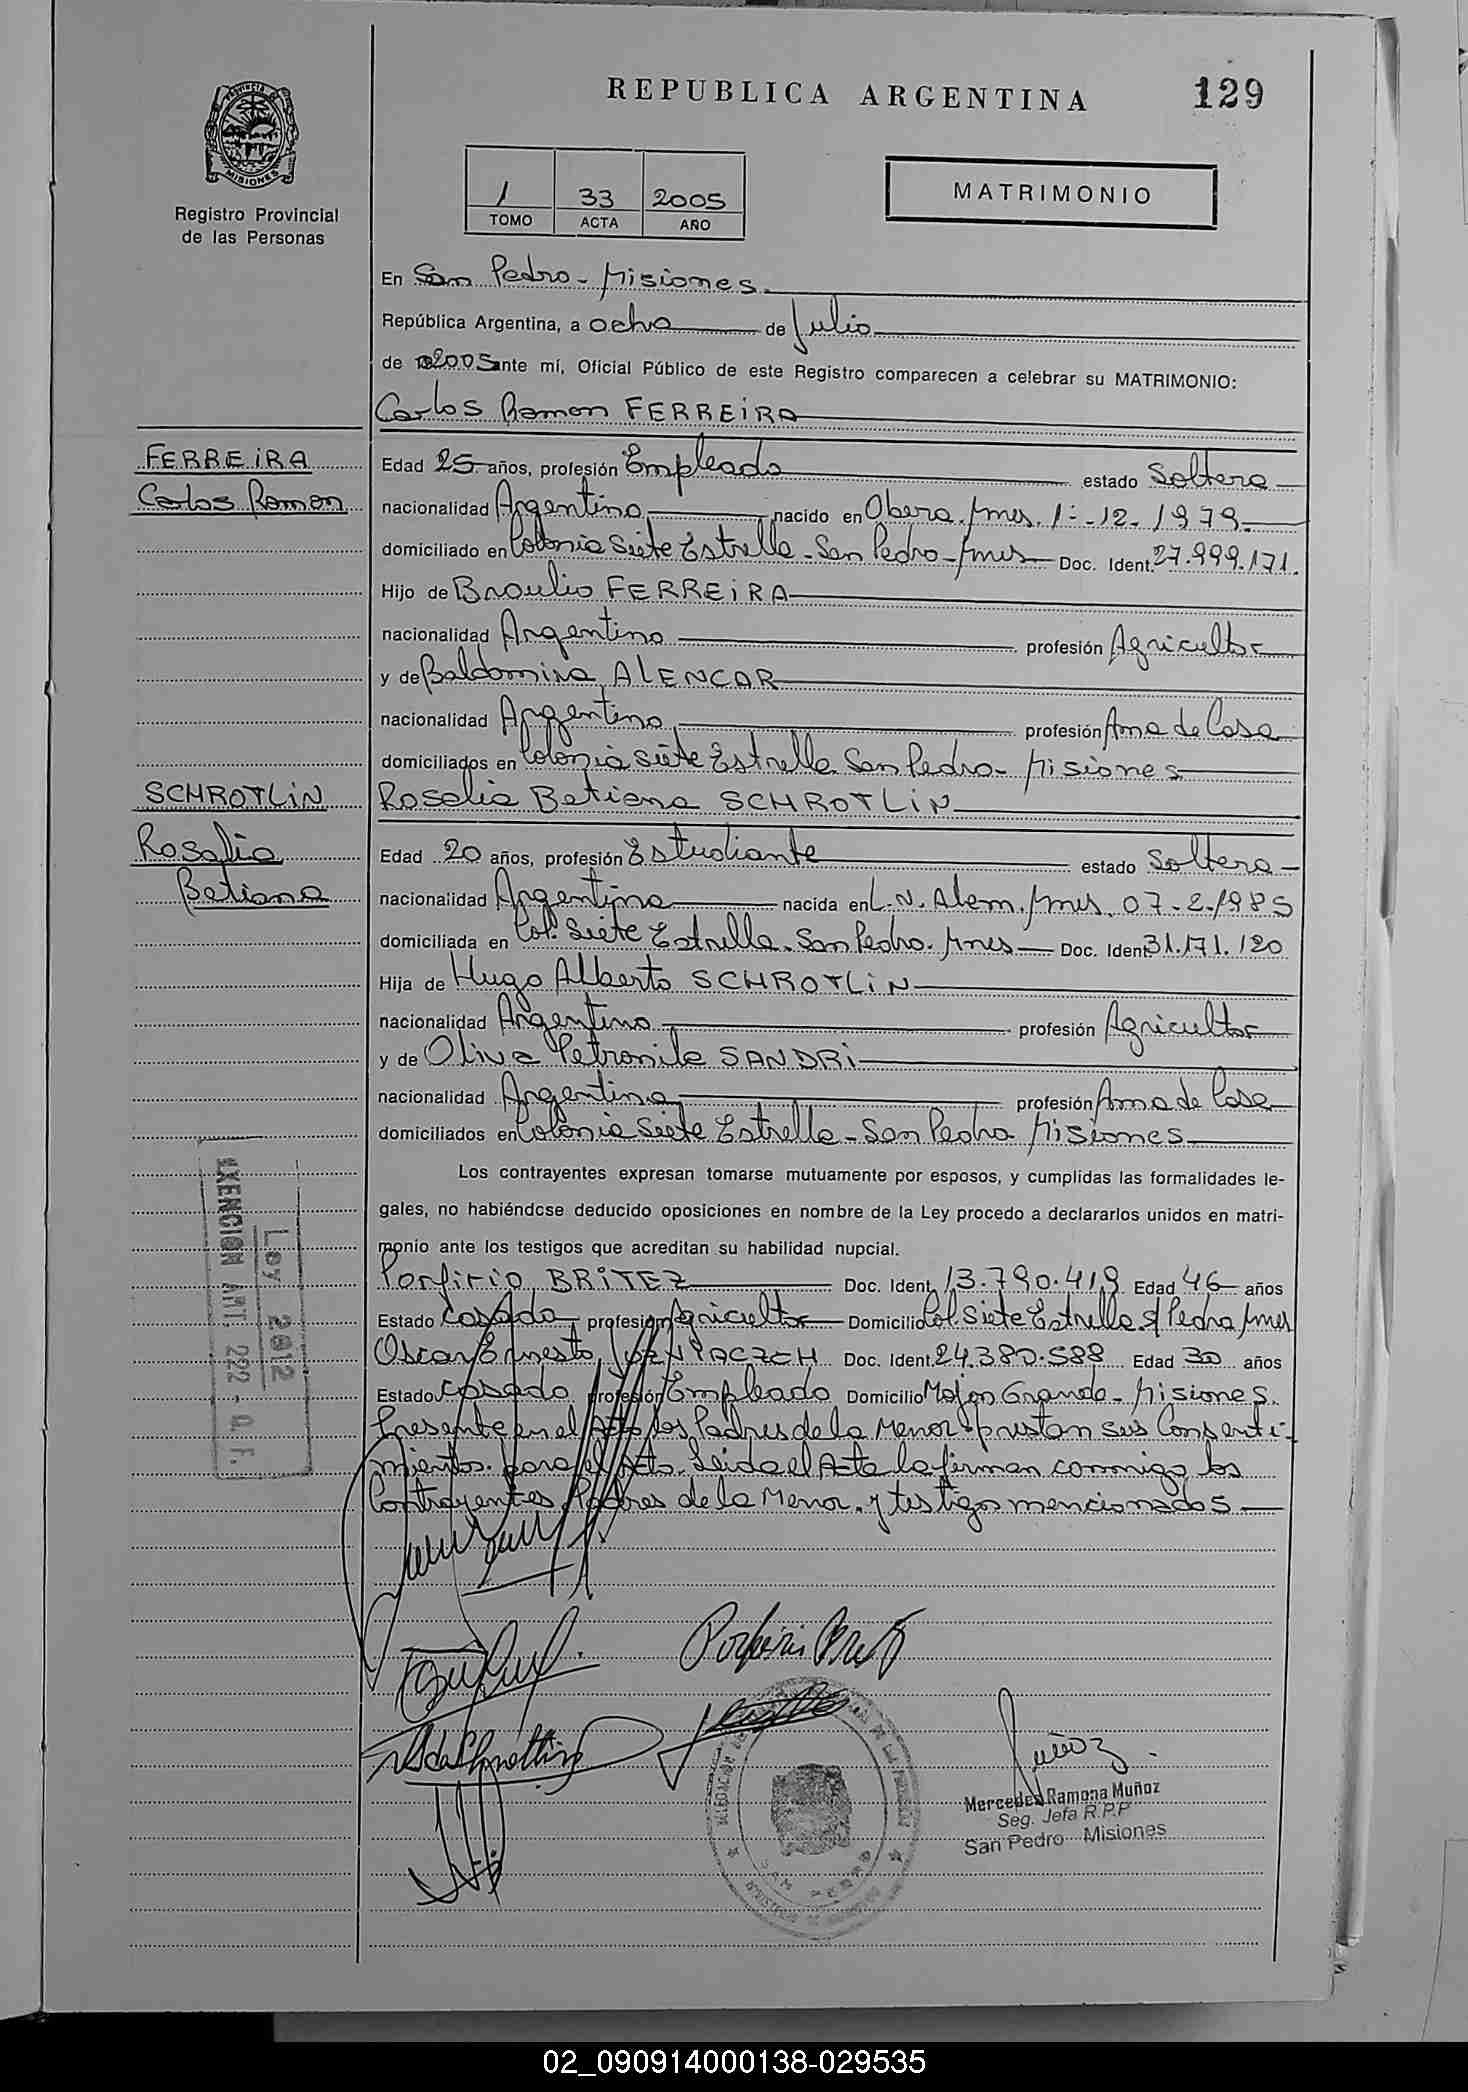 REPUBLICA ARGENTINA
129
PROVINCIA DE MISIONES
Registro Provincial
de las Personas
1 33 2005
TOMO ACTA AÑO
MATRIMONIO
En San Pedro - Misiones
República Argentina, a ocho de Julio
de 2005 ante mí, Oficial Público de este Registro comparecen a celebrar su MATRIMONIO:
Carlos Ramon FERREIRA
FERREIRA
Carlos Ramon
Edad 25 años, profesión Empleado estado Soltero
nacionalidad Argentino nacido en Obera. Mnes. 1-12-1979
domiciliado en Colonia Siete Estrella - San Pedro - Mnes Doc. Ident. 27.999.171.
Hijo de Braulio FERREIRA
nacionalidad Argentino profesión Agricultor
y de Baldomira ALENCAR
nacionalidad Argentina profesión Ama de Casa
domiciliados en Colonia Siete Estrella San Pedro - Misiones
SCHROTLIN
Rosalia
Betiana
Rosalia Betiana SCHROTLIN
Edad 20 años, profesión Estudiante estado Soltera
nacionalidad Argentina nacida en L.N. Alem. Mnes. 07-2-1985
domiciliada en Col. Siete Estrella. San Pedro. Mnes Doc. Ident 31.171.120
Hija de Hugo Alberto SCHROTLIN
nacionalidad Argentino profesión Agricultor
y de Oliva Petronila SANDRI
nacionalidad Argentina profesión Ama de Casa
domiciliados en Colonia Siete Estrella - San Pedro Misiones
Los contrayentes expresan tomarse mutuamente por esposos, y cumplidas las formalidades le-
gales, no habiéndose deducido oposiciones en nombre de la Ley procedo a declararlos unidos en matri-
monio ante los testigos que acreditan su habilidad nupcial.
EXENCION ART. 222 - C.F.
Ley 2812
Porfirio BRITEZ Doc. Ident. 13.790.419 Edad 46 años
Estado Casado profesión Agricultor Domicilio Col. Siete Estrella. S/Pedro Mnes
Oscar Ernesto Doc. Ident. 24.380.588 Edad 30 años
Estado Casado profesión Empleado Domicilio Mojon Grande - Misiones.
Presente en el Acto los Padres de la Menor prestan sus Consenti-
mientos para el Acto. Leida el Acta la firman conmigo los
Contrayentes, Padres de la Menor. y testigos mencionados
Muñoz
Mercedes Ramona Muñoz
Seg. Jefa R.P.P
San Pedro - Misiones
02_090914000138-029535